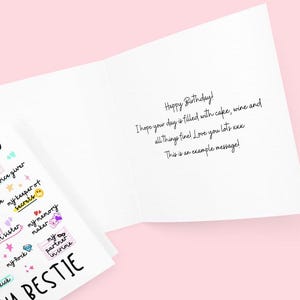 Happy Birthday!
I hope your day is filled with cake, wine and
all things fine! Love you lots xxx
This is an example message!
my keeper of
secrets
my memory
maker
my rock
my
partner
in crime
BESTIE